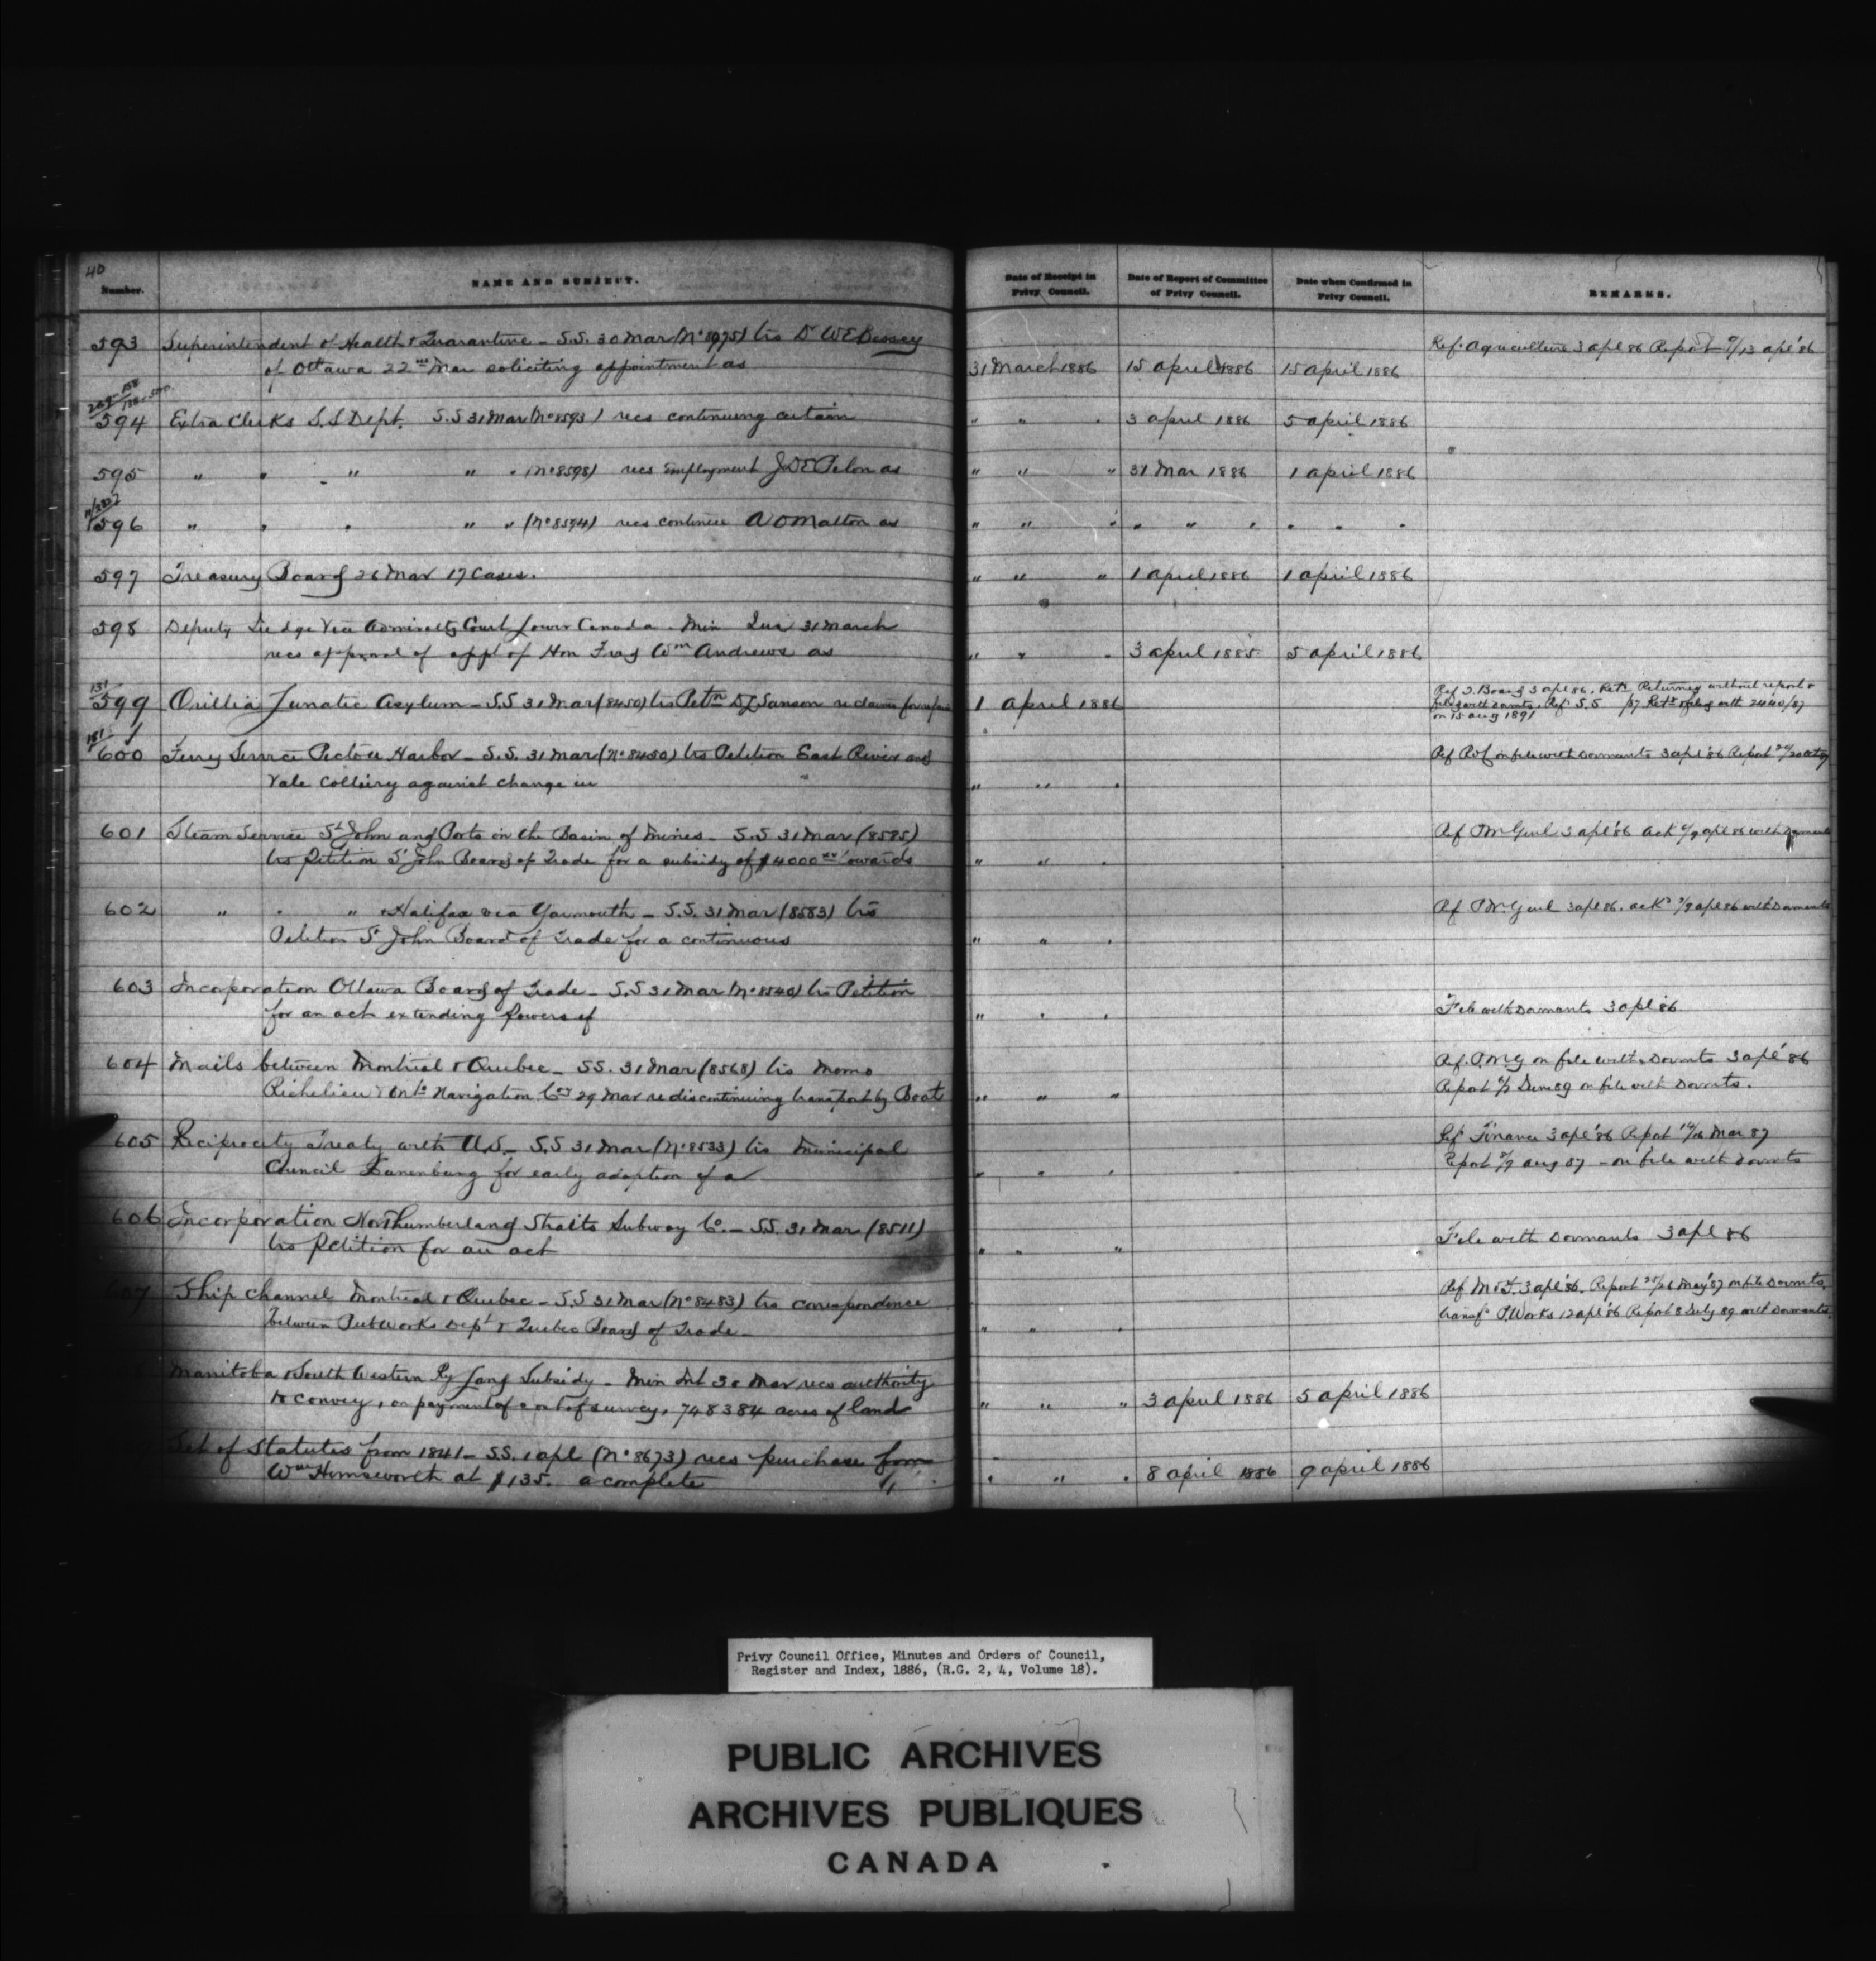 40
Number. NAME AND SUBJECT. Date of Receipt in Privy Council. Date of Report of Committee of Privy Council. Date when Confirmed in Privy Council. REMARKS.
593 Superintendent of Health & Quarantine - S.S. 30 Mar (No 8975) trs Dr W E Bessey Ref. Agriculture 3 apl 86 Report 9/13 apl '86
of Ottawa 22nd Mar soliciting appointment as 31 March 1886 15 april 1886 15 april 1886
594 Extra Clerks S.S Dept. S.S 31 Mar (No 8593) recs continuing certain " " " 3 april 1886 5 april 1886
595 " " " " " (No 8598) recs employment as " " " 31 Mar 1886 1 april 1886
596 " " " " " (No 8594) recs continue A O Malton as " " " " " " " " "
597 Treasury Board 26 Mar 17 Cases. " " " 1 april 1886 1 april 1886
598 Deputy Judge Vice Admiralty Court Lower Canada - Min Jus 31 March
recs approval of appt of Hon Fras Wm Andrews as " " " 3 april 1885 5 april 1886
131
599 Orillia Lunatic Asylum - S.S 31 Mar (8450) trs Petn Sanson re claims for 1 april 1886 Ref T. Board 3 apl 86. Retd Returned without report &
filed with Dormts. Ref S.S /87 Retd & filed with 2440/87
on 15 aug 1891
181
600 Ferry Service Pictou Harbor - S.S. 31 Mar (No 8450) trs Petition East River and on file with Dormants 3 apl '86 Report
Vale Colliery against change in " " "
601 Steam Service St John and Ports in the Basin of Mines - S.S 31 Mar (8585) Ref P M Genl 3 apl '86 ack 6/9 apl 86 with Dormants
trs Petition St John Board of Trade for a subsidy of $4000 towards " " "
602 " " " & Halifax via Yarmouth - S.S. 31 Mar (8583) trs Ref P M. Genl 3 apl 86. ackd 7/9 apl 86 with Dormants
Petition St John Board of Trade for a continuous " " "
603 Incorporation Ottawa Board of Trade - S.S 31 Mar (No 8540) trs Petition
for an act extending powers of " " " File with Dormants 3 apl 86
604 Mails between Montreal & Quebec - SS. 31 Mar (8568) trs Memo Ref. P.M.G on file with Dormts 3 apl '86
Richelieu & Onto Navigation Coy 29 Mar re discontinuing transport by Boats " " " Report June 89 on file with Dormts.
605 Reciprocity Treaty with U.S. - S.S 31 Mar (No 8533) trs Municipal Ref Finance 3 apl '86 Report 14/16 Mar 87
Council Lunenburg for early adoption of a " " " Report 5/9 aug 87 - on file with Dormts
606 Incorporation Northumberland Straits Subway Co. - SS. 31 Mar (8511)
trs Petition for an act " " " File with Dormants 3 apl 86
607 Ship Channel Montreal & Quebec - S.S 31 Mar (No 8483) trs correspondence Ref M & F. 3 apl '86. Report 25/26 May '87 on file Dormts.
between Pub Works Dept & Quebec Board of Trade - " " " transf P. Works 12 apl '86 Report 8 July 89 with Dormants.
Manitoba & South Western Ry Land Subsidy - Min Int 30 Mar recs authority
to convey, on payment of cost of survey, 748384 acres of land " " " 3 april 1886 5 april 1886
Set of Statutes from 1841 - S.S. 1 apl (No 8673) recs purchase from
Wm Himsworth at $135. a complete " " " 8 april 1886 9 april 1886
Privy Council Office, Minutes and Orders of Council,
Register and Index, 1886, (R.G. 2, 4, Volume 18).
PUBLIC ARCHIVES
ARCHIVES PUBLIQUES
CANADA